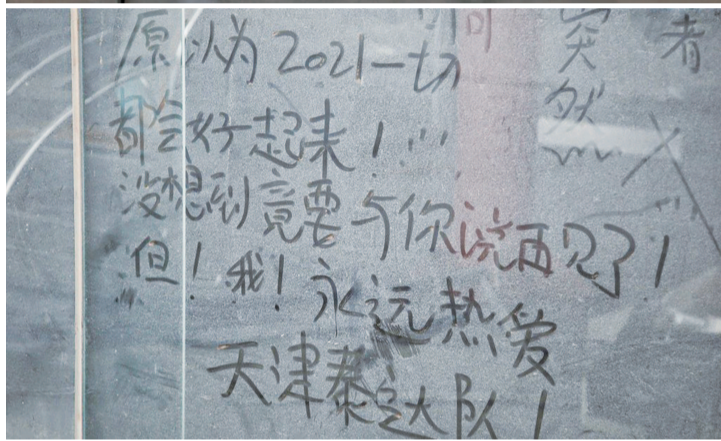 原以为2021一切
都会好起来！…
没想到竟要与你说再见了！
但！我！永远热爱
天津泰达队！
突然
者